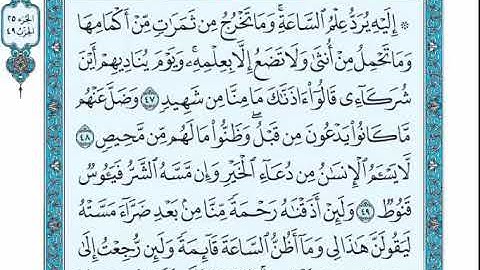 الجزء ٢٥
الحزب ٤٩
۞ إِلَيْهِ يُرَدُّ عِلْمُ ٱلسَّاعَةِ ۚ وَمَا تَخْرُجُ مِن ثَمَرَٰتٍ مِّنْ أَكْمَامِهَا
وَمَا تَحْمِلُ مِنْ أُنثَىٰ وَلَا تَضَعُ إِلَّا بِعِلْمِهِۦ ۚ وَيَوْمَ يُنَادِيهِمْ أَيْنَ
شُرَكَآءِى قَالُوٓا۟ ءَاذَنَّٰكَ مَا مِنَّا مِن شَهِيدٍ ٤٧ وَضَلَّ عَنْهُم
مَّا كَانُوا۟ يَدْعُونَ مِن قَبْلُ ۖ وَظَنُّوا۟ مَا لَهُم مِّن مَّحِيصٍ ٤٨
لَّا يَسْـَٔمُ ٱلْإِنسَٰنُ مِن دُعَآءِ ٱلْخَيْرِ وَإِن مَّسَّهُ ٱلشَّرُّ فَيَـُٔوسٌ
قَنُوطٌ ٤٩ وَلَئِنْ أَذَقْنَٰهُ رَحْمَةً مِّنَّا مِنۢ بَعْدِ ضَرَّآءَ مَسَّتْهُ
لَيَقُولَنَّ هَٰذَا لِى وَمَآ أَظُنُّ ٱلسَّاعَةَ قَآئِمَةً وَلَئِن رُّجِعْتُ إِلَىٰ